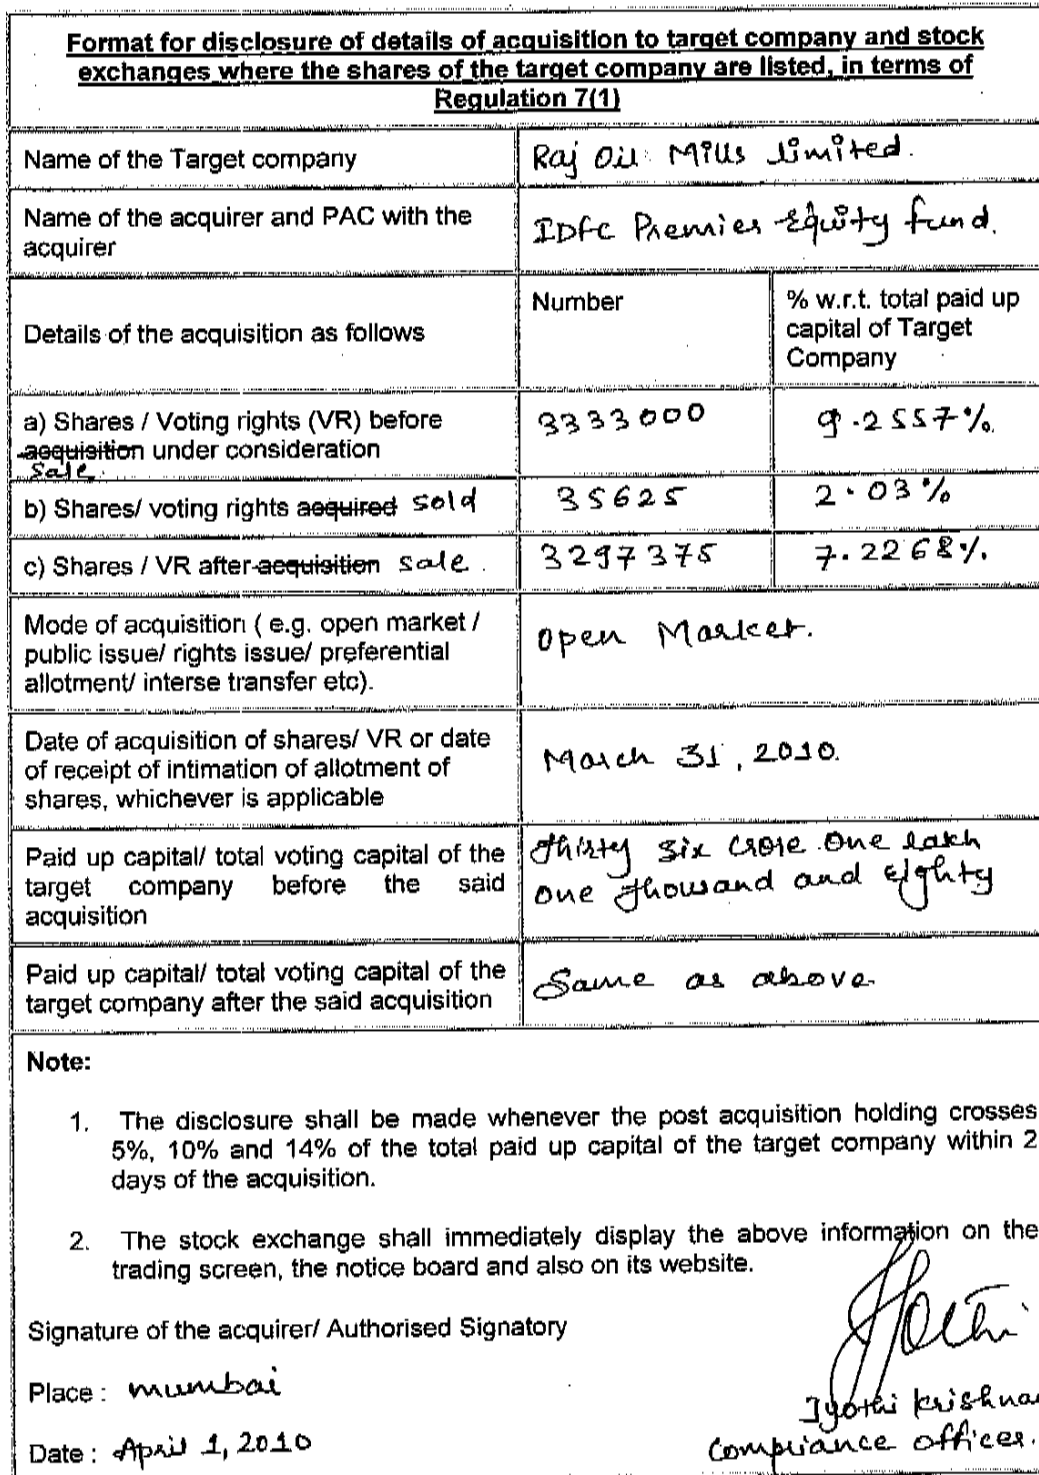 Format for disclosure of details of acquisition to target company and stock
exchanges where the shares of the target company are listed, in terms of
Regulation 7(1)
Name of the Target company
Raj Oil Mills Limited.
Name of the acquirer and PAC with the
acquirer
IDFC Premier Equity fund.
Details of the acquisition as follows
Number
% w.r.t. total paid up
capital of Target
Company
a) Shares / Voting rights (VR) before
acquisition under consideration
sale.
3333000
9.2557%
b) Shares/ voting rights acquired sold
35625
2.03%
c) Shares / VR after acquisition sale.
3297375
7.2268%.
Mode of acquisition ( e.g. open market /
public issue/ rights issue/ preferential
allotment/ interse transfer etc).
open Market.
Date of acquisition of shares/ VR or date
of receipt of intimation of allotment of
shares, whichever is applicable
March 31, 2010.
Paid up capital/ total voting capital of the
target company before the said
acquisition
Thirty six crore one lakh
one thousand and eighty
Paid up capital/ total voting capital of the
target company after the said acquisition
Same as above.
Note:
1. The disclosure shall be made whenever the post acquisition holding crosses
5%, 10% and 14% of the total paid up capital of the target company within 2
days of the acquisition.
2. The stock exchange shall immediately display the above information on the
trading screen, the notice board and also on its website.
Signature of the acquirer/ Authorised Signatory
Place : mumbai
Jyothi Krishnan
Date : April 1, 2010
Compliance officer.